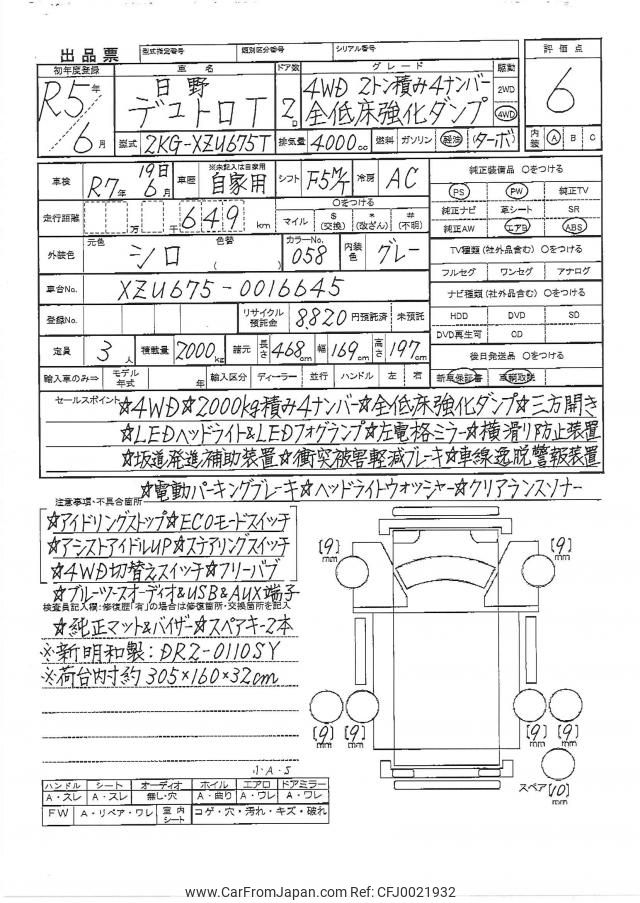 出品票 型式指定番号 類別区分番号 シリアル番号
初年度登録 車名 ドア数 グレード 駆動 評価点
R5年 6月 日野 デュトロT 2口 4WD 2トン積み4ナンバー 全低床強化ダンプ 2WD 4WD 6
型式 2KG-XZU675T 排気量 4000cc 燃料 ガソリン 軽油 (ターボ) 内装 A B C
車検 R7年 6月 19日 車歴 ※未記入は自家用 自家用 シフト F5M/T 冷房 AC
走行距離 万 千 649 km ○をつける マイル $(交換) *(改ざん) #(不明)
外装色 元色 シロ 色替 ( ) カラーNo. 058 内装色 グレー
車台No. XZU675-0016645
登録No. リサイクル預託金 8,820 円預託済 未預託
定員 3人 積載量 2000kg 諸元 長さ 468cm 幅 169cm 高さ 197cm
輸入車のみ⇒ モデル年式 年 輸入区分 ディーラー 並行 ハンドル 左 右
純正装備品 ○をつける
PS PW 純正TV
純正ナビ 革シート SR
純正AW エアB ABS
TV種類(社外品含む) ○をつける
フルセグ ワンセグ アナログ
ナビ種類(社外品含む) ○をつける
HDD DVD SD
DVD再生可 CD
後日発送品 ○をつける
新車保証書 車輌取説
セールスポイント ☆4WD☆2000kg積み4ナンバー☆全低床強化ダンプ☆三方開き
☆LEDヘッドライト&LEDフォグランプ☆左電格ミラー☆横滑り防止装置
☆坂道発進補助装置☆衝突被害軽減ブレーキ☆車線逸脱警報装置
☆電動パーキングブレーキ☆ヘッドライトウォッシャー☆クリアランスソナー
注意事項・不具合箇所
☆アイドリングストップ☆ECOモードスイッチ
☆アシストアイドルUP☆ステアリングスイッチ
☆4WD切替えスイッチ☆フリーハブ
☆ブルーツースオーディオ&USB&AUX端子
検査員記入欄:修復歴「有」の場合は修復箇所・交換箇所を記入
☆純正マット&バイザー☆スペアキー2本
※新明和製:DR2-0110SY
※荷台内寸約 305×160×32cm
[9]mm [9]mm
[9]mm [9]mm [9]mm [9]mm
スペア[10]mm
小A-S
ハンドル シート オーディオ ホイル エアロ ドアミラー
A・スレ A・スレ 無し・穴 A・曲り A・ワレ A・ワレ
FW A・リペア・ワレ 室内シート コゲ・穴・汚れ・キズ・破れ
www.CarFromJapan.com Ref: CFJ0021932